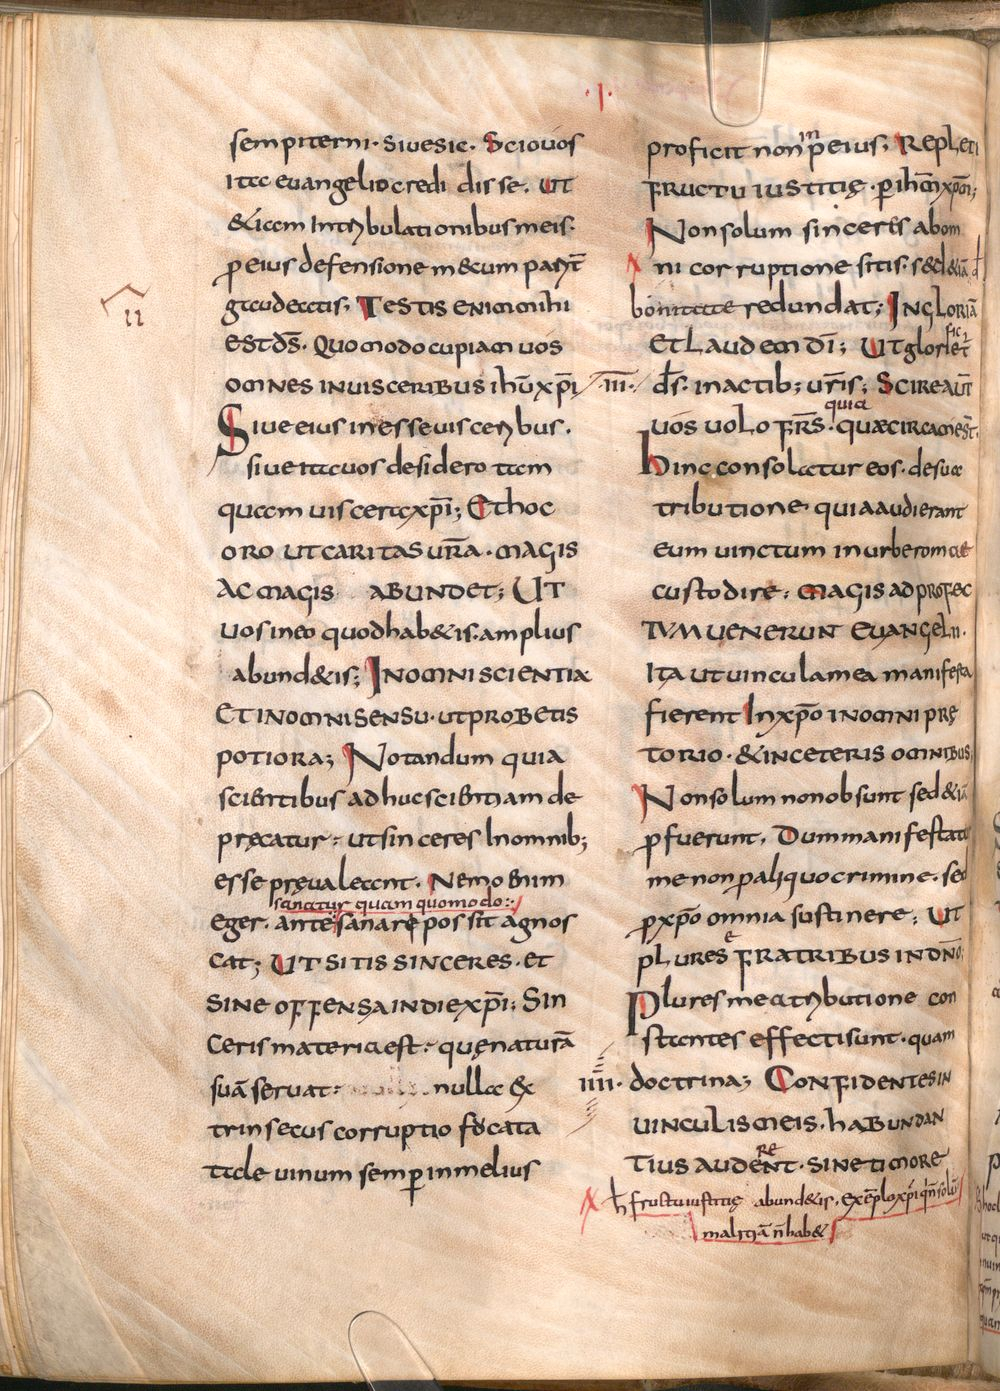 ·I·
sempiterni· siuesic· Scio uos
ita euangelio credi disse. ut
&iam In trybulationibus meis·
p eius defensione mecum pat
gaudeatis; Testis enim mihi
est ds̄. Quomodo cupiam uos
II
omnes in uisceribus ihū xp̄i
Siue eius inesse uisceribus.
siue ita uos desidero tam
quam uiscera xp̄i; Et hoc
oro ut caritas ur̄a. magis
ac magis abundet; Ut
uos in eo quod hab&is. amplius
abund&is; In omni scientia
et in omni sensu. ut probetis
potiora; Notandum quia
scientibus adhuc scientiam de
pręcatur; ut sinceres In omnib;
esse pręualeant. Nemo enim
sanatur quam quomodo:·
eger. ante sanare possit agnos
cat; Ut sitis sinceres. et
sine offensa in die xp̄i; Sin
ceris materia est; quę naturā
suā seruat: nulla &
trinsecus corruptio focata
tale uinum semp in melius
proficit non in peius; Repleti
fructu iustitię. p ihm̄ xpm̄;
Non solum sinceres ab om
ni corruptione sitis. sed &iā
bonitate redundat; In gloriā
et laudem dī; Ut glorific&
·III· ds̄. in actib; ur̄is; Scire aut̄
quia
uos uolo fr̄s. quæ circa me s̄t.
hinc consolatur eos. de sua
tributione quia audierant
eum uinctum in urbe romae
custodire; magis ad profec
tum uenerunt euangelii.
Ita ut uincula mea manifesta
fierent In xp̄o in omni prę
torio. & in ceteris omnibus
Non solum non obsunt sed &iā
pfuerunt. Dum manifestat
me non p aliquo crimine. sed
p xp̄o omnia sustinere; Ut
plures e fratribus in dn̄o
Plures mea trybutione con
stantes effecti sunt. quam
IIII· doctrina; Confidentes in
uinculis meis. habundan
tius audere nt. sine timore
h fructu iustitię abund&is. exēplo xp̄i q̄ n̄ solū
malitiā n̄ hab&